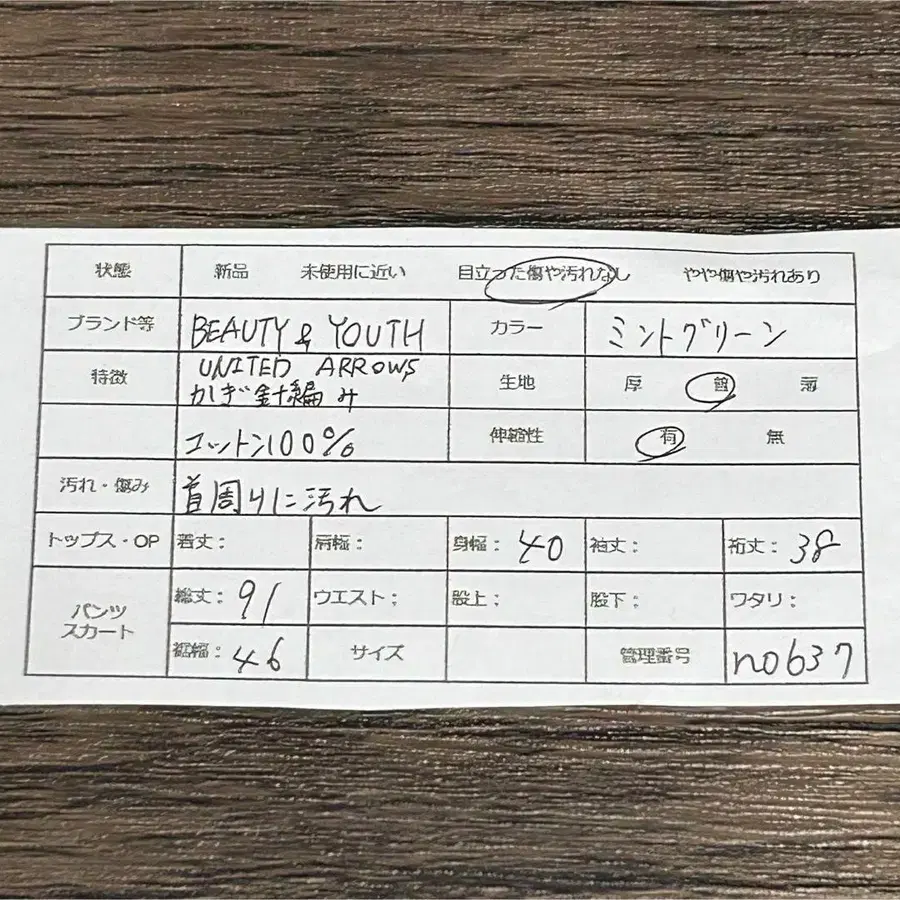 状態 新品 未使用に近い 目立った傷や汚れなし やや傷や汚れあり
ブランド等 BEAUTY & YOUTH カラー ミントグリーン
UNITED ARROWS
特徴 かぎ針編み 生地 厚 普 薄
コットン100% 伸縮性 有 無
汚れ・傷み 首周りに汚れ
トップス・OP 着丈: 肩幅: 身幅: 40 袖丈: 裄丈: 38
パンツ 総丈: 91 ウエスト: 股上: 股下: ワタリ:
スカート 裾幅: 46 サイズ 管理番号 no637